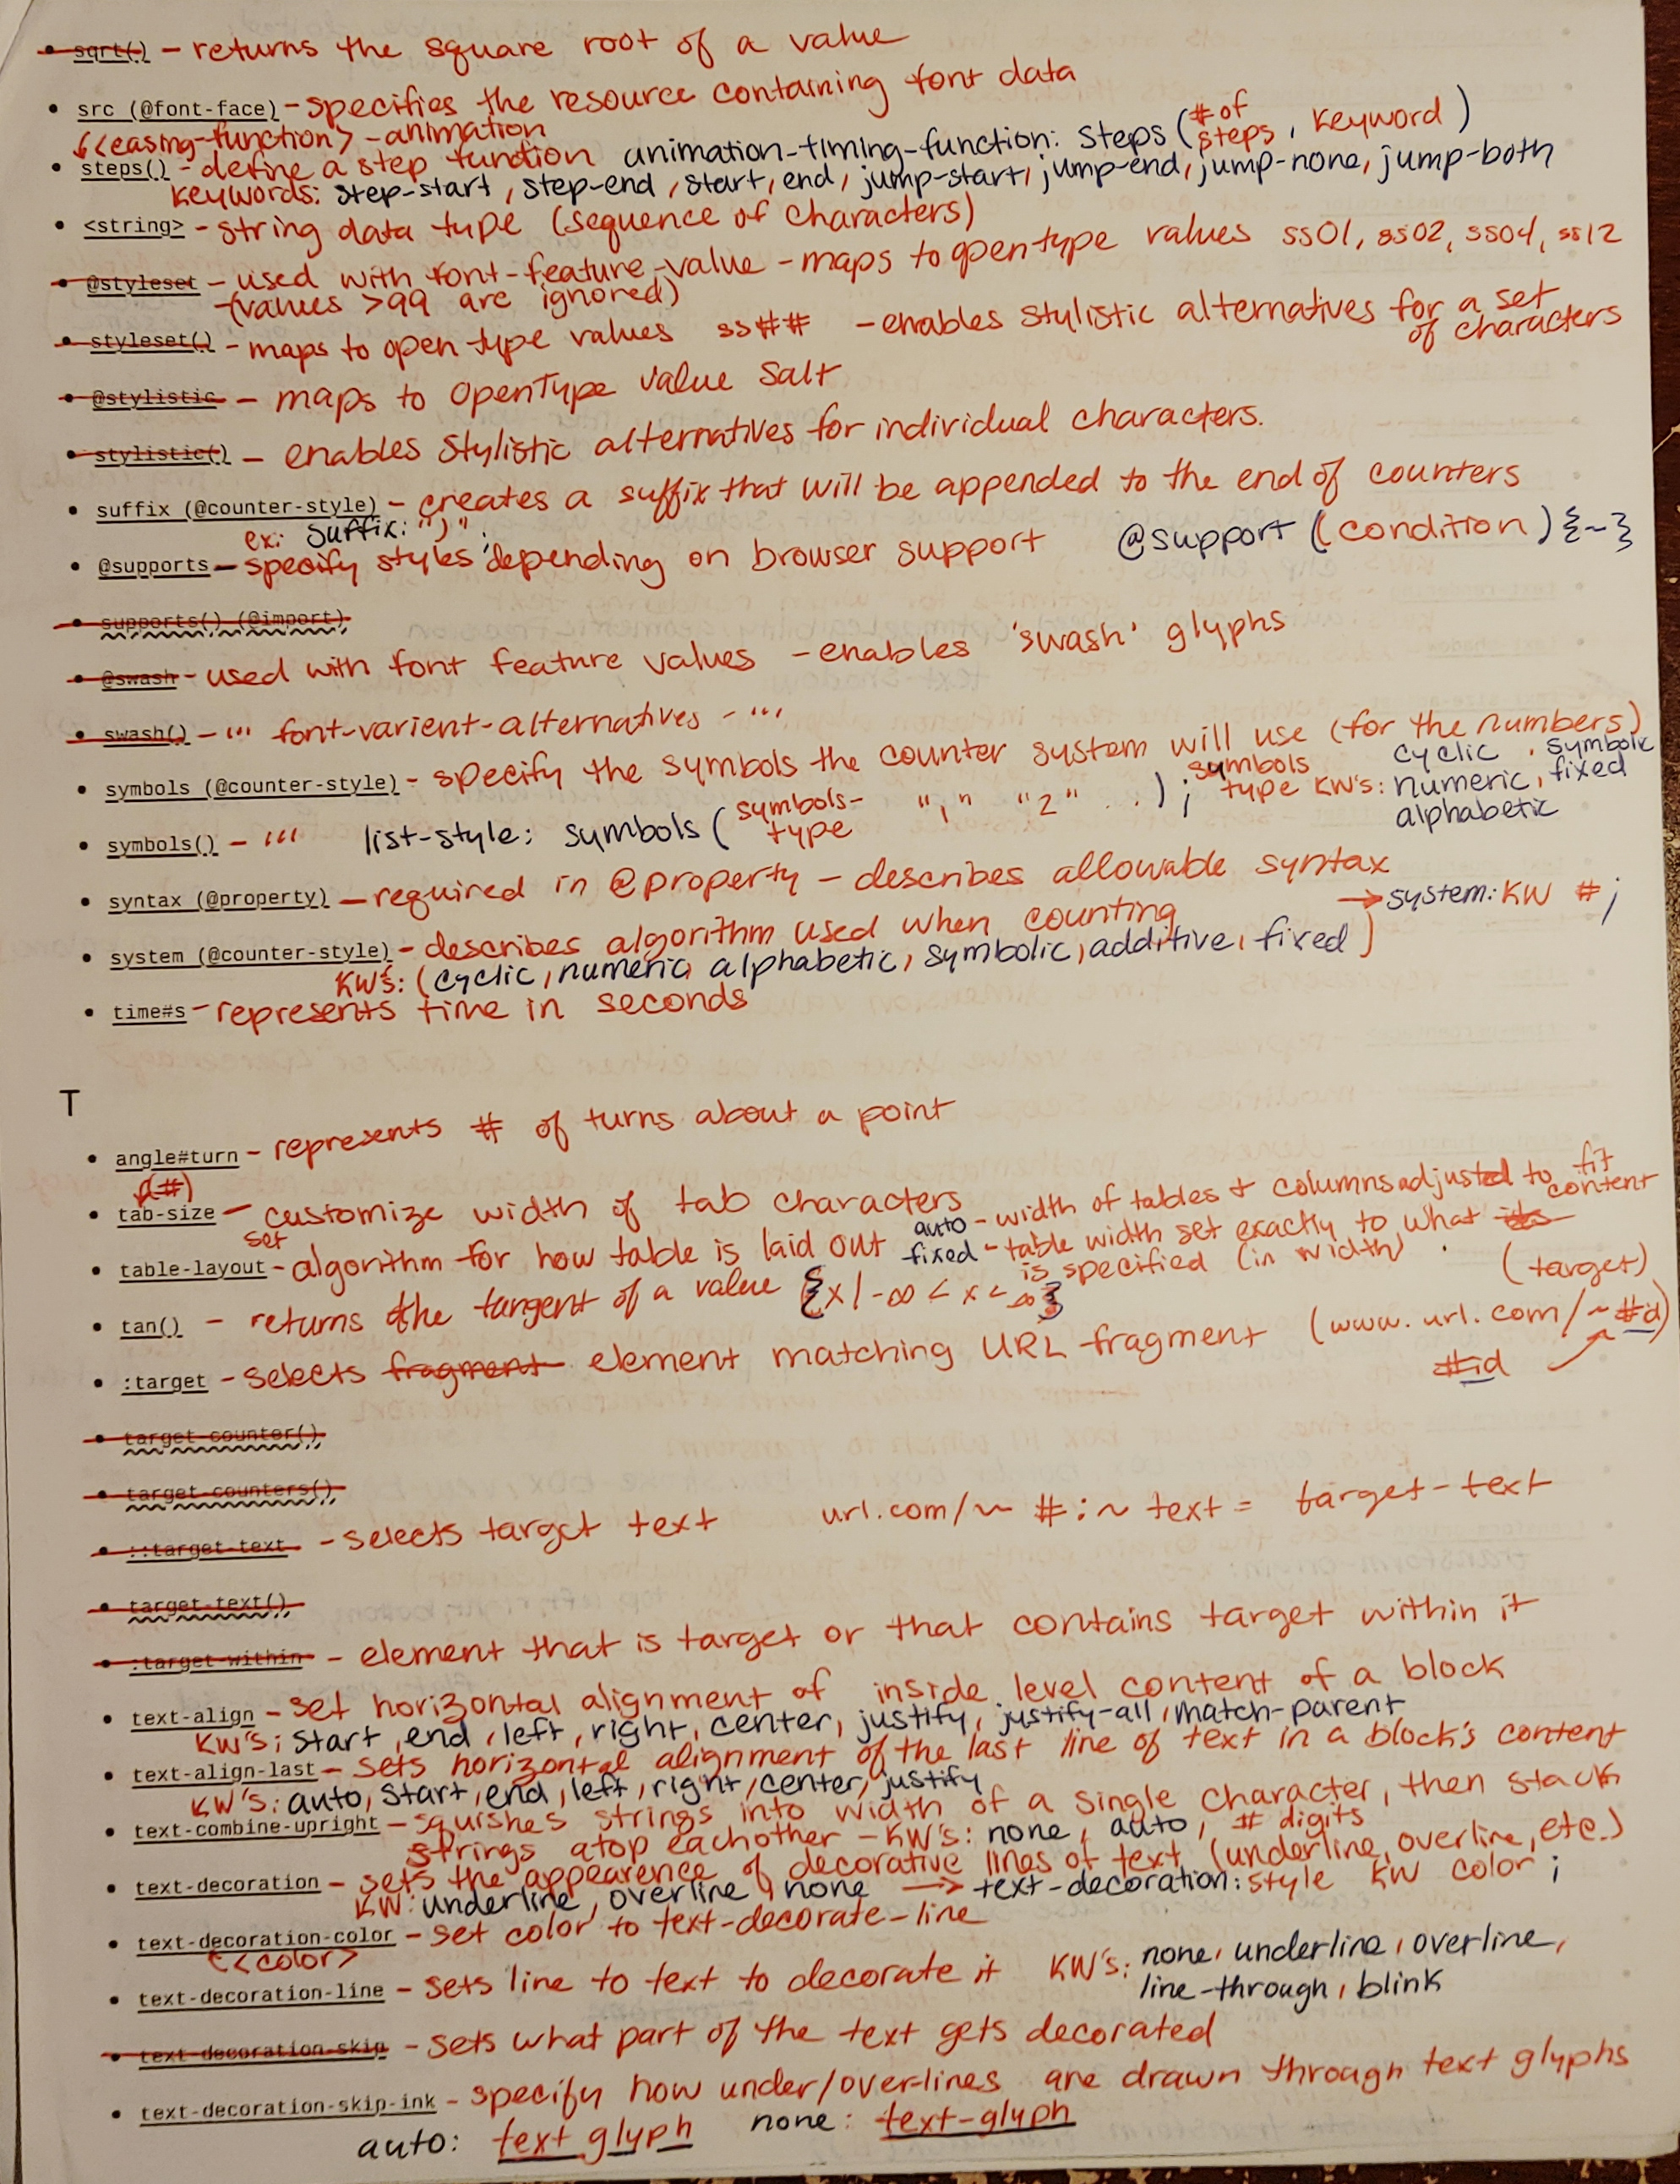 • sqrt() – returns the square root of a value
• src (@font-face) – specifies the resource containing font data
<easing-function> – animation
• steps() – define a step function animation-timing-function: steps (# of steps, keyword)
keywords: step-start, step-end, start, end, jump-start, jump-end, jump-none, jump-both
• <string> – string data type (sequence of characters)
• @styleset – used with font-feature-value – maps to opentype values ss01, ss02, ss04, ss12
– (values >99 are ignored)
• styleset() – maps to open type values ss## – enables stylistic alternatives for a set of characters
• @stylistic – maps to OpenType value salt
• stylistic() – enables stylistic alternatives for individual characters.
• suffix (@counter-style) – creates a suffix that will be appended to the end of counters
ex: suffix: ")";
• @supports – specify styles depending on browser support @support (condition) {~}
• supports() (@import)
• @swash – used with font feature values – enables 'swash' glyphs
• swash() – ''' font-varient-alternatives – '''
• symbols (@counter-style) – specify the symbols the counter system will use (for the numbers)
• symbols() – ''' list-style: symbols (symbols-type "1" "2" . . ); symbols type KW's: cyclic, symbolic numeric, fixed alphabetic
• syntax (@property) – required in @property – describes allowable syntax
• system (@counter-style) – describes algorithm used when counting → system: KW #;
KW's: (cyclic, numeric, alphabetic, symbolic, additive, fixed)
• time#s – represents time in seconds
T
• angle#turn – represents # of turns about a point
(#)
• tab-size – customize width of tab characters
• table-layout – set algorithm for how table is laid out auto – width of tables & columns adjusted to fit content
fixed – table width set exactly to what its is specified (in width)
• tan() – returns the tangent of a value {x | -∞ < x < ∞}
• :target – selects fragment element matching URL fragment (www.url.com/~#id) (target)
#id
• target-counter()
• target-counters()
• ::target-text – selects target text url.com/~ #:~ text = target-text
• target-text()
• :target-within – element that is target or that contains target within it
• text-align – set horizontal alignment of inside level content of a block
KW's: start, end, left, right, center, justify, justify-all, match-parent
• text-align-last – sets horizontal alignment of the last line of text in a block's content
KW's: auto, start, end, left, right, center, justify
• text-combine-upright – squishes strings into width of a single character, then stack
strings atop eachother – KW's: none, auto, # digits
• text-decoration – sets the appearence of decorative lines of text (underline, overline, etc.)
KW: underline, overline, none → text-decoration: style KW color;
• text-decoration-color – set color to text-decorate-line
<color>
• text-decoration-line – sets line to text to decorate it KW's: none, underline, overline,
line-through, blink
• text-decoration-skip – sets what part of the text gets decorated
• text-decoration-skip-ink – specify how under/over-lines are drawn through text glyphs
auto: text glyph none: text-glyph